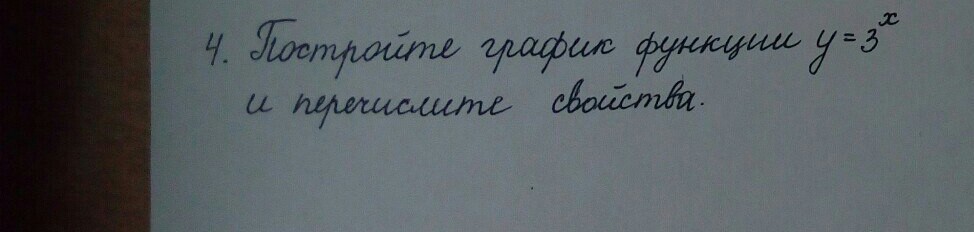 4. Постройте график функции y=3ˣ
и перечислите свойства.